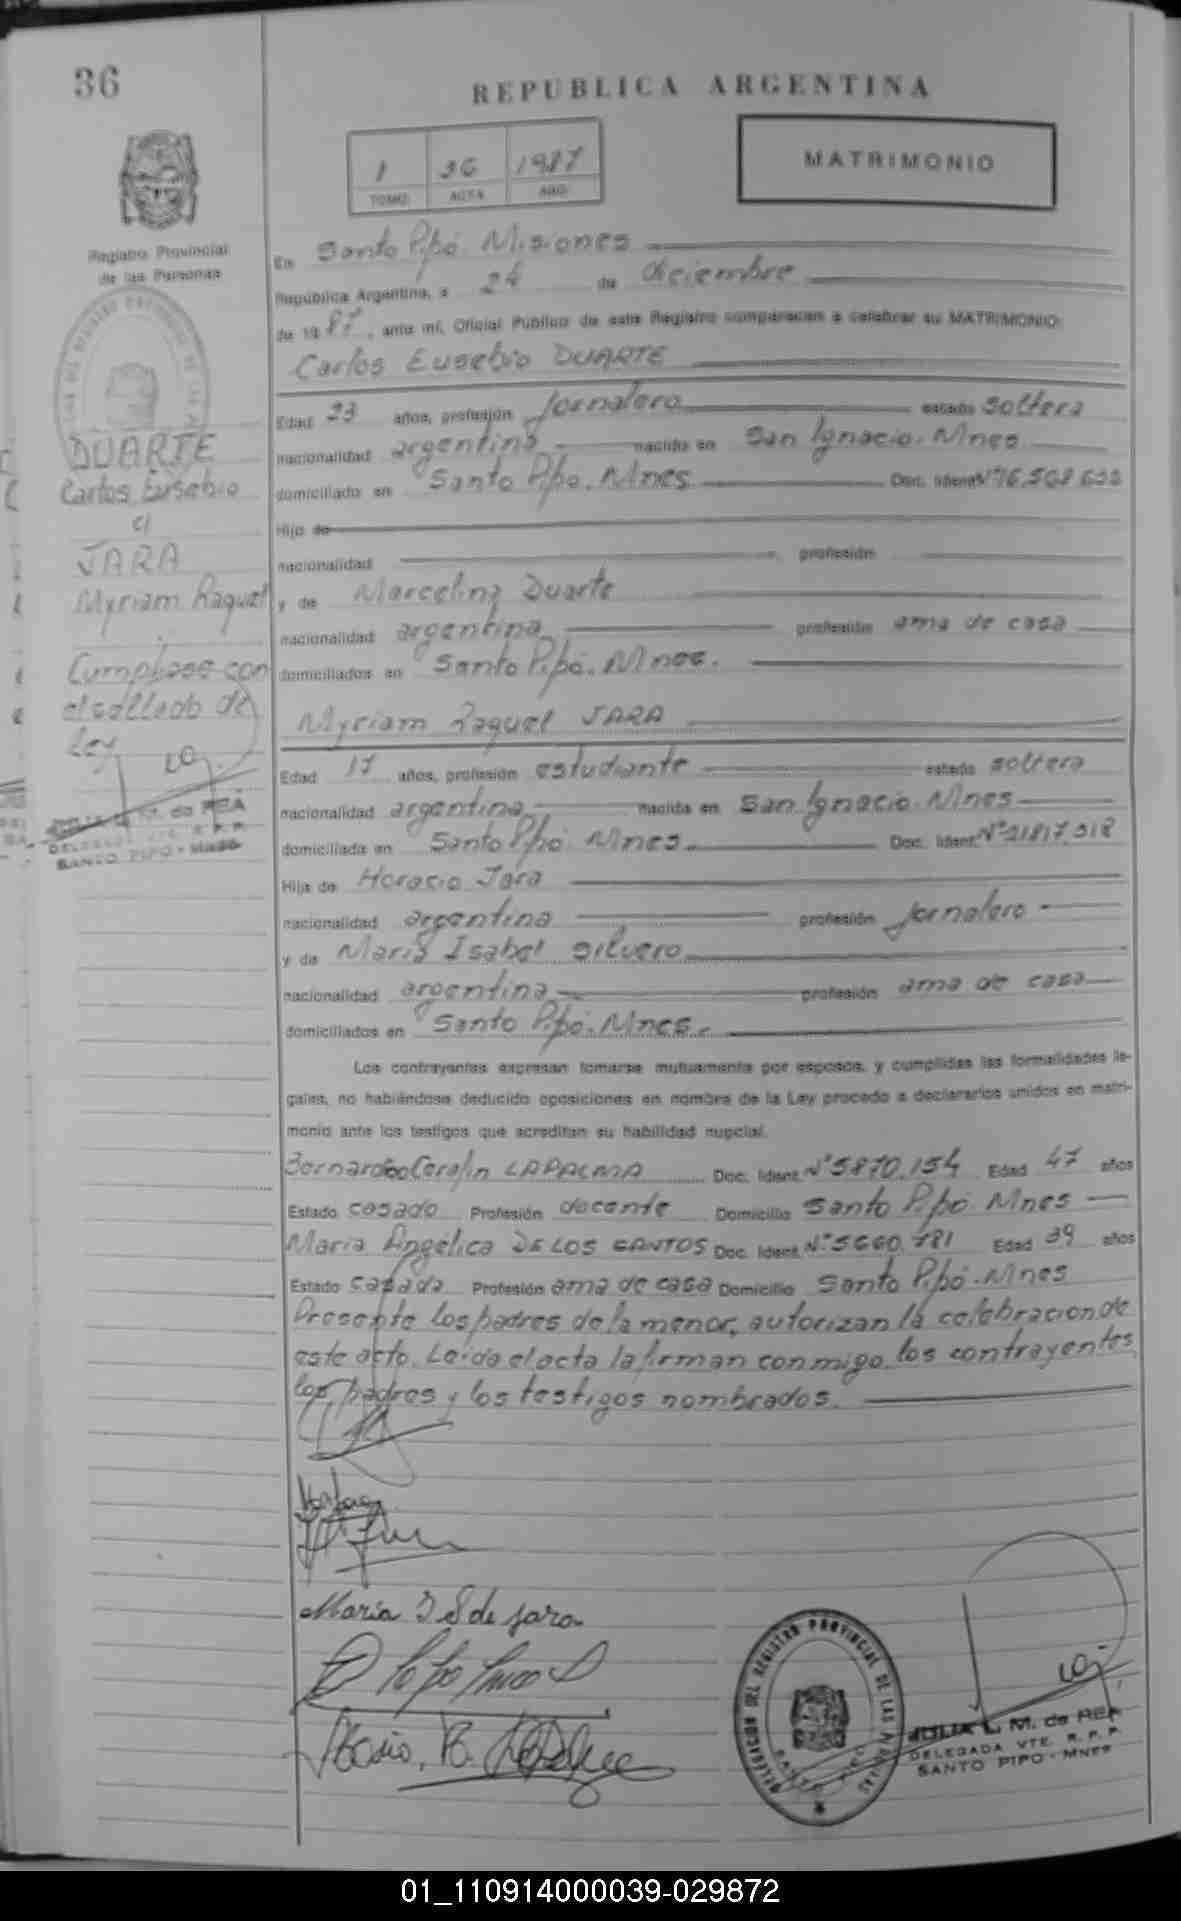 36
REPUBLICA ARGENTINA
1 36 1987
TOMO ACTA AÑO
MATRIMONIO
Registro Provincial
de las Personas
En Santo Pipó. Misiones
República Argentina, a 24 de diciembre
de 1987, ante mí, Oficial Público de este Registro comparecen a celebrar su MATRIMONIO:
Carlos Eusebio DUARTE
Edad 23 años, profesión Jornalero estado soltera
nacionalidad argentina nacido en San Ignacio. Mnes
domiciliado en Santo Pipó. Mnes Doc. Ident. Nº
Hijo de
nacionalidad profesión
y de Marcelina Duarte
nacionalidad argentina profesión ama de casa
domiciliados en Santo Pipó. Mnes.
DUARTE
Carlos Eusebio
c/
JARA
Myriam Raquel
Cumplase con
el sellado de
Ley
Myriam Raquel JARA
Edad 17 años, profesión estudiante estado soltera
nacionalidad argentina nacida en San Ignacio. Mnes
domiciliada en Santo Pipó. Mnes. Doc. Ident. Nº 21817.318
Hija de Horacio Jara
nacionalidad argentina profesión Jornalero
y de María Isabel Silvero
nacionalidad argentina profesión ama de casa
domiciliados en Santo Pipó. Mnes.
de REA
SANTO PIPO - MNES
Los contrayentes expresan tomarse mutuamente por esposos, y cumplidas las formalidades le-
gales, no habiéndose deducido oposiciones en nombre de la Ley procedo a declararlos unidos en matri-
monio ante los testigos que acreditan su habilidad nupcial.
LAPALMA Doc. Ident. Nº 5870.154 Edad 47 años
Estado casado Profesión docente Domicilio Santo Pipó. Mnes
María Angélica DE LOS SANTOS Doc. Ident. Nº 5660.781 Edad 39 años
Estado casada Profesión ama de casa Domicilio Santo Pipó. Mnes
Presente los padres de la menor, autorizan la celebracion de
este acto. Leida el acta la firman conmigo, los contrayentes
los padres y los testigos nombrados.
Maria I S de Jara
DELEGACION DEL REGISTRO PROVINCIAL DE LAS PERSONAS
SANTO PIPO
JULIA L. M. de REA
DELEGADA VTE. R. P. P.
SANTO PIPO - MNES
01_110914000039-029872